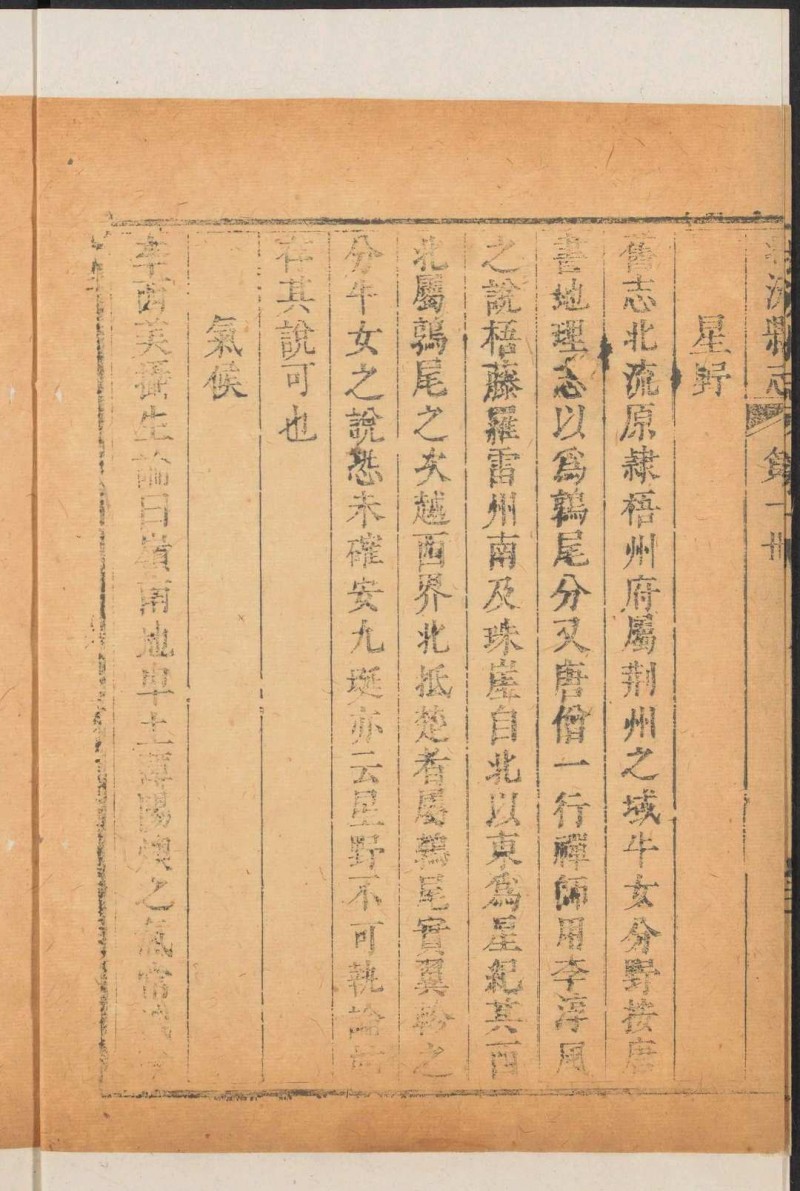 北流縣志 第一冊
星野
舊志北流原隸梧州府屬荆州之域牛女分野按唐
書地理志以爲鶉尾分又唐僧一行禪師用李淳風
之說梧藤羅雷州南及珠崖自北以東爲星紀其西
北屬鶉尾之次越西界北抵楚者屬鶉尾實翼軫之
分牛女之說恐未確安九埏亦云星野不可執論姑
存其說可也
氣候
李西美攝生論曰嶺南地卑土薄陽燠之氣常